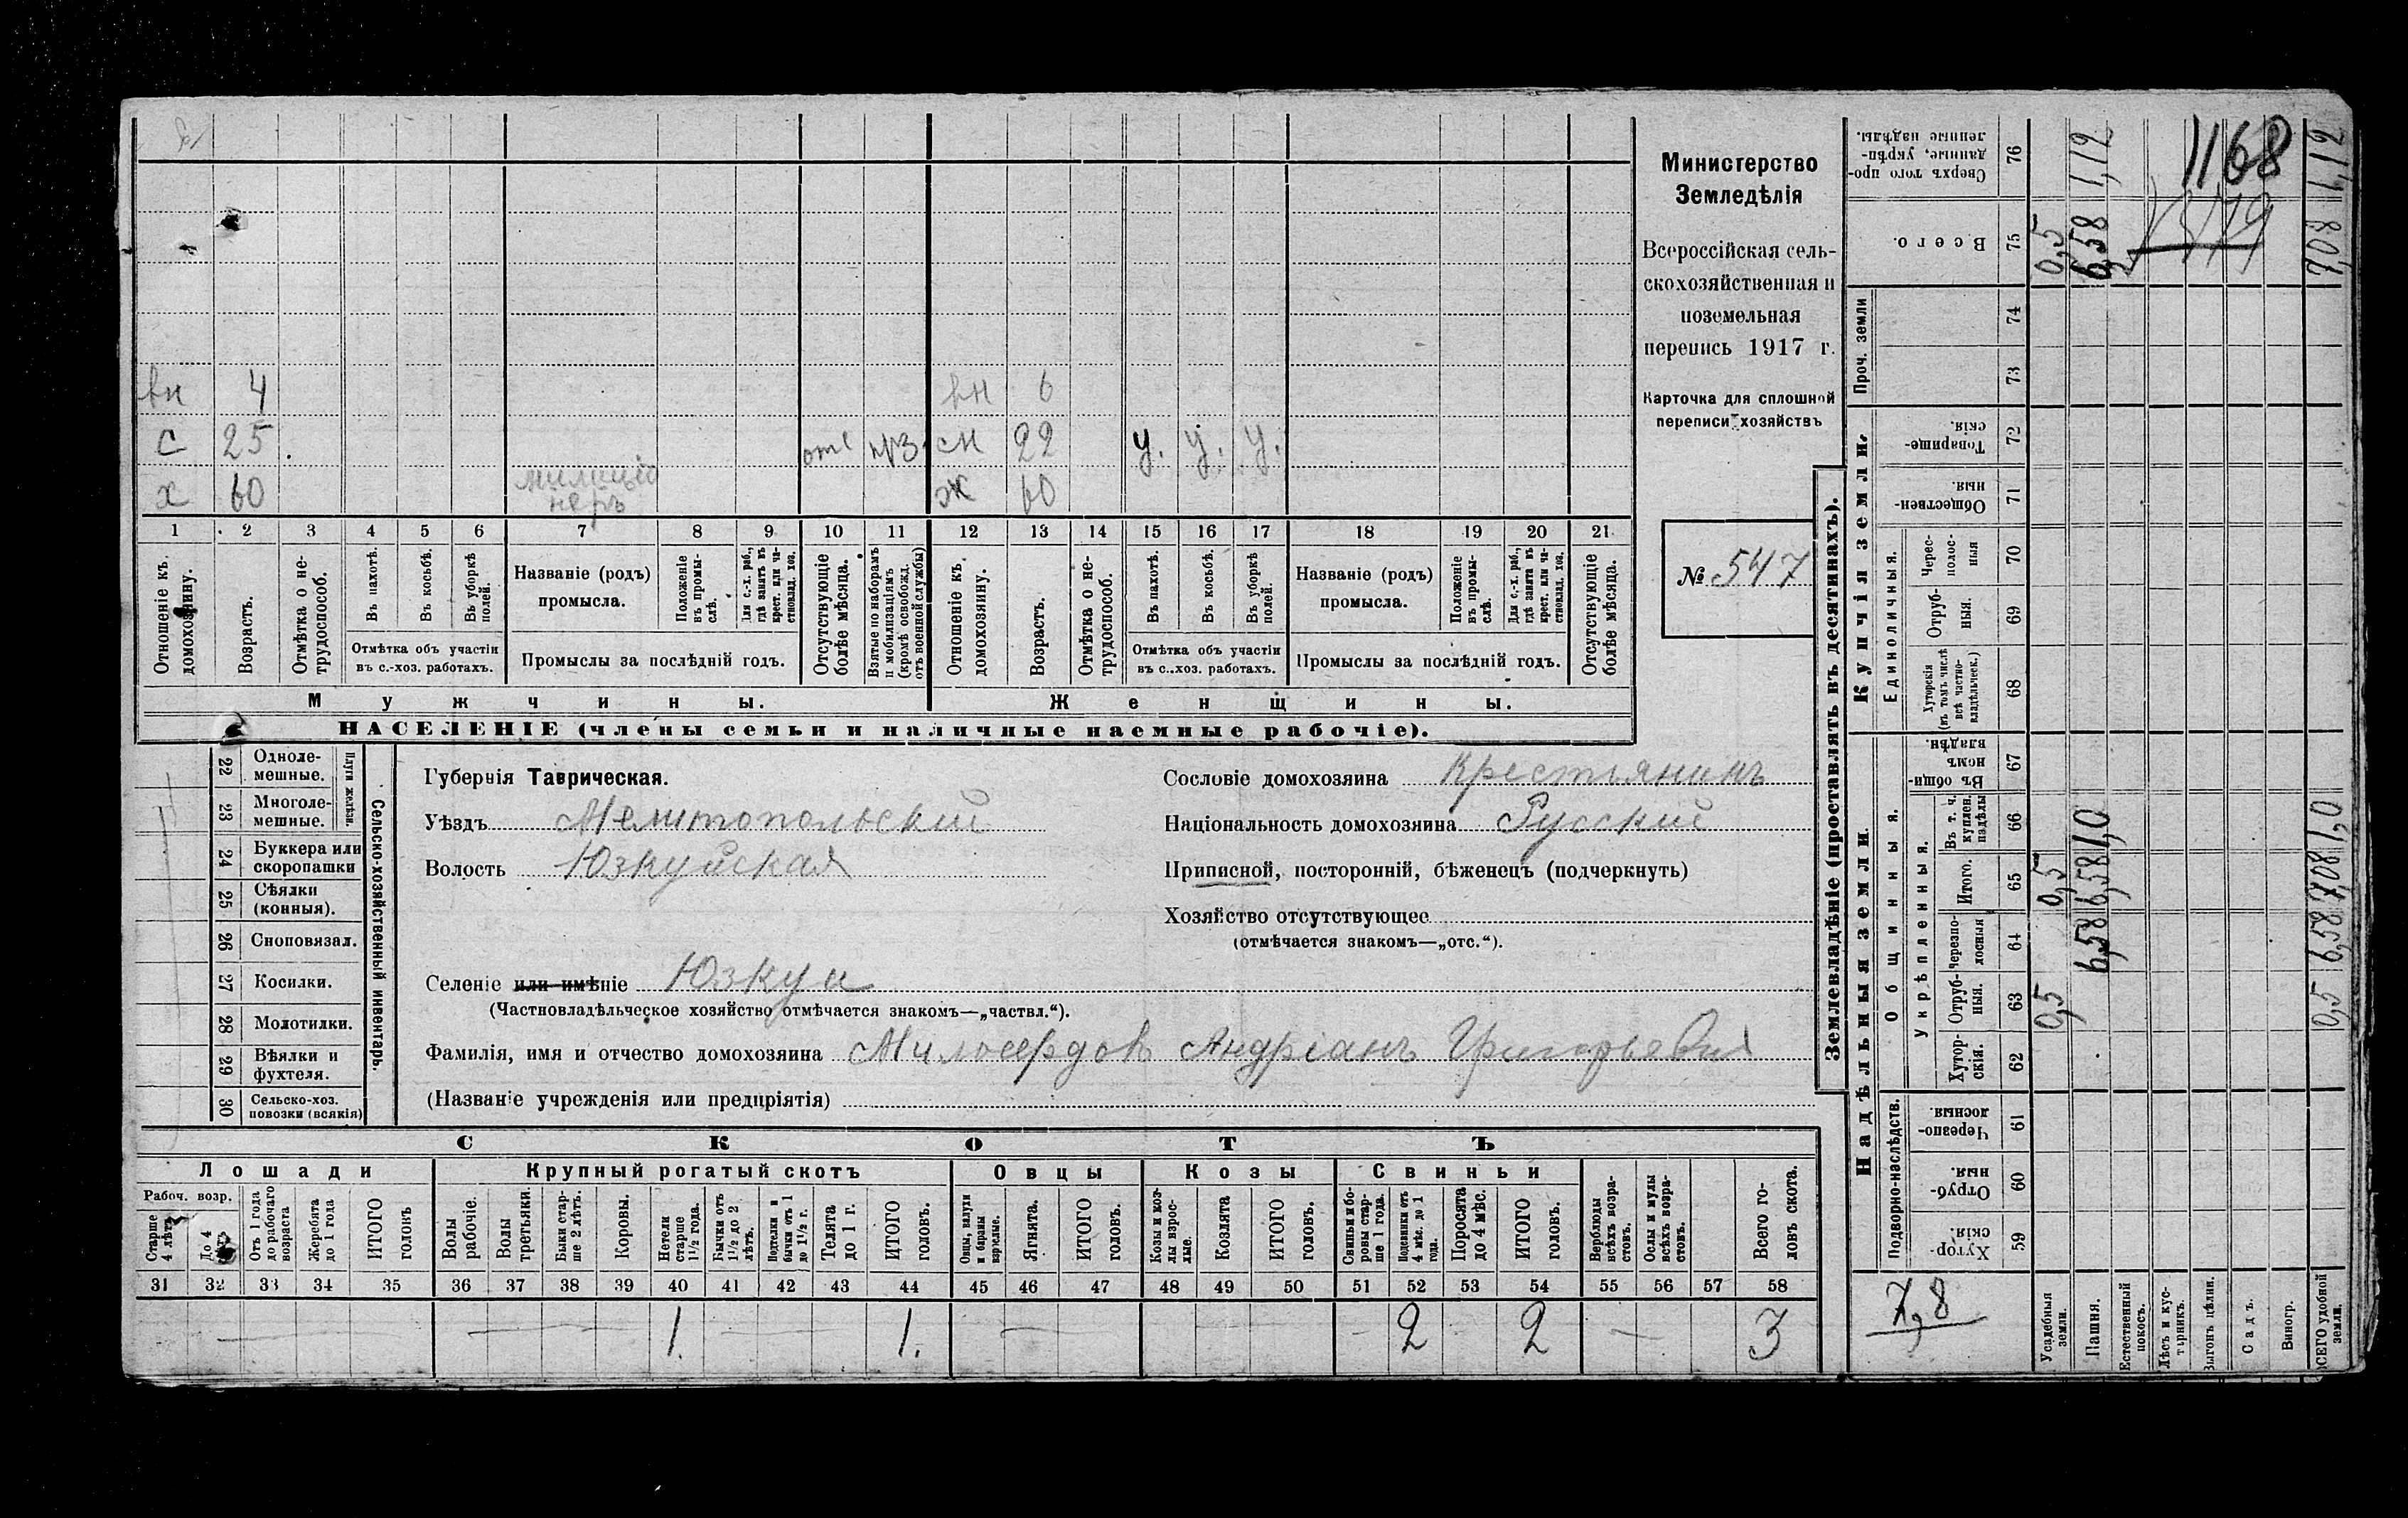 вн 4 вн 6
с 25 отс №3 сн 22 у. у. у.
х 60 милиціо ж 60
неръ
1 2 3 4 5 6 7 8 9 10 11 12 13 14 15 16 17 18 19 20 21
Отношеніе къ домохозяину.
Возрастъ.
Отмѣтка о не-
трудоспособ.
Въ пахотѣ.
Въ косьбѣ.
Въ уборкѣ
полей.
Отмѣтка объ участіи
въ с.-хоз. работахъ.
Названіе (родъ)
промысла.
Положеніе
въ промы-
слѣ.
Для с.-х. раб.,
гдѣ занятъ въ
крест. или ча-
стновлад. хоз.
Промыслы за послѣдній годъ.
Отсутствующіе
болѣе мѣсяца.
Взятые по наборамъ
и мобилизаціямъ
(кромѣ освобожд.
отъ военной службы)
Отношеніе къ
домохозяину.
Возрастъ.
Отмѣтка о не-
трудоспособ.
Въ пахотѣ.
Въ косьбѣ.
Въ уборкѣ
полей.
Отмѣтка объ участіи
въ с.-хоз. работахъ.
Названіе (родъ)
промысла.
Положеніе
въ промы-
слѣ.
Для с.-х. раб.,
гдѣ занята въ
крест. или ча-
стновлад. хоз.
Промыслы за послѣдній годъ.
Отсутствующіе
болѣе мѣсяца.
Мужчины. Женщины.
НАСЕЛЕНІЕ (члены семьи и наличные наемные рабочіе).
Министерство
Земледѣлія
Всероссійская сель-
скохозяйственная и
поземельная
перепись 1917 г.
Карточка для сплошной
переписи хозяйствъ
№ 547
22 Одноле-
мешные.
23 Многоле-
мешные.
Плуги желѣзн.
24 Буккера или
скоропашки
25 Сѣялки
(конныя).
26 Сноповязал.
27 Косилки.
28 Молотилки.
29 Вѣялки и
фухтеля.
30 Сельско-хоз.
повозки (всякія)
Сельско-хозяйственный инвентарь.
Губернія Таврическая.
Уѣздъ Мелитопольскій
Волость Юзкуйская
Сословіе домохозяина Крестьянинъ
Національность домохозяина Русскій
Приписной, посторонній, бѣженецъ (подчеркнуть)
Хозяйство отсутствующее
(отмѣчается знакомъ—„отс.“).
Селеніе или имѣніе Юзкуи
(Частновладѣльческое хозяйство отмѣчается знакомъ—„частвл.“).
Фамилія, имя и отчество домохозяина Милосердовъ Андріанъ Григорьевич
(Названіе учрежденія или предпріятія)
СКОТЪ
Лошади Крупный рогатый скотъ Овцы Козы Свиньи
Рабоч. возр.
Старше
4 лѣтъ
До 4
лѣтъ
Отъ 1 года
до рабочаго
возраста
Жеребята
до 1 года
ИТОГО
головъ
Волы
рабочіе.
Волы
третьяки.
Быки стар-
ше 2 лѣтъ.
Коровы.
Нетели
старше
1½ года.
Бычки отъ
1½ до 2
лѣтъ.
Подтелки и
бычки отъ 1
до 1½ г.
Телята
до 1 г.
ИТОГО
головъ.
Овцы, валухи
и бараны
взрослые.
Ягнята.
ИТОГО
головъ.
Козы и коз-
лы взрос-
лые.
Козлята
ИТОГО
головъ.
Свиньи и бо-
ровы стар-
ше 1 года.
Подсвинки отъ
4 мѣс. до 1
года.
Поросята
до 4 мѣс.
ИТОГО
головъ.
Верблюды
всѣхъ возра-
стовъ.
Ослы и мулы
всѣхъ возра-
стовъ.
Всего го-
ловъ скота.
31 32 33 34 35 36 37 38 39 40 41 42 43 44 45 46 47 48 49 50 51 52 53 54 55 56 57 58
1. 1. 2 2 3
Землевладѣніе (проставлять въ десятинахъ).
Надѣльныя земли. Купчія земли. Проч. земли
Подворно-наслѣдств. Общинныя. Единоличныя.
Укрѣпленныя.
Хутор-
скія. 59
Отруб-
ныя. 60
Черезпо-
лосныя. 61
Хутор-
скія. 62
Отруб-
ныя. 63
Черезпо-
лосныя 64
Итого. 65
Въ т. ч.
куплен.
надѣлы 66
Въ общин-
номъ
владѣн. 67
Хуторскія
(въ томъ числѣ
всѣ частно-
владѣльческ.) 68
Отруб-
ныя. 69
Черес-
полос-
ныя 70
Обществен-
ныя. 71
Товарище-
скія. 72
73
74
Всего. 75
Сверхъ того про-
данные, укрѣп-
ленные надѣлы. 76
7,8
Усадебныя
земли. 0,5 0,5 0,5
Пашня. 6,58 6,58 1,0 6,58 1,12
Естественный
покосъ.
Лѣсъ и кус-
тарникъ.
Выгонъ цѣлин.
Садъ.
Виногр.
ВСЕГО удобной
земли. 0,5 6,58 7,08 1,0 7,08 1,12
1168